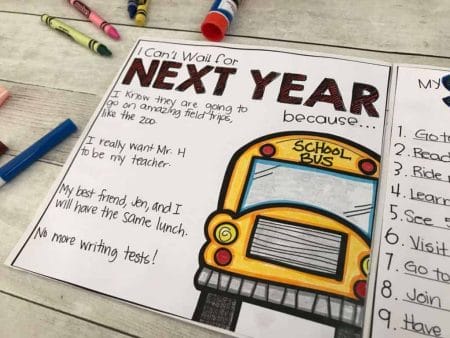 I Can't Wait for
NEXT YEAR
because...
I know they are going to
go on amazing field trips,
like the zoo.
I really want Mr. H
to be my teacher.
My best friend, Jen, and I
will have the same lunch.
No more writing tests!
SCHOOL
BUS
MY
1. Go to
2. Read
3. Ride
4. Learn
5. See 5
6. Visit
7. Go to
8. Join
9. Have